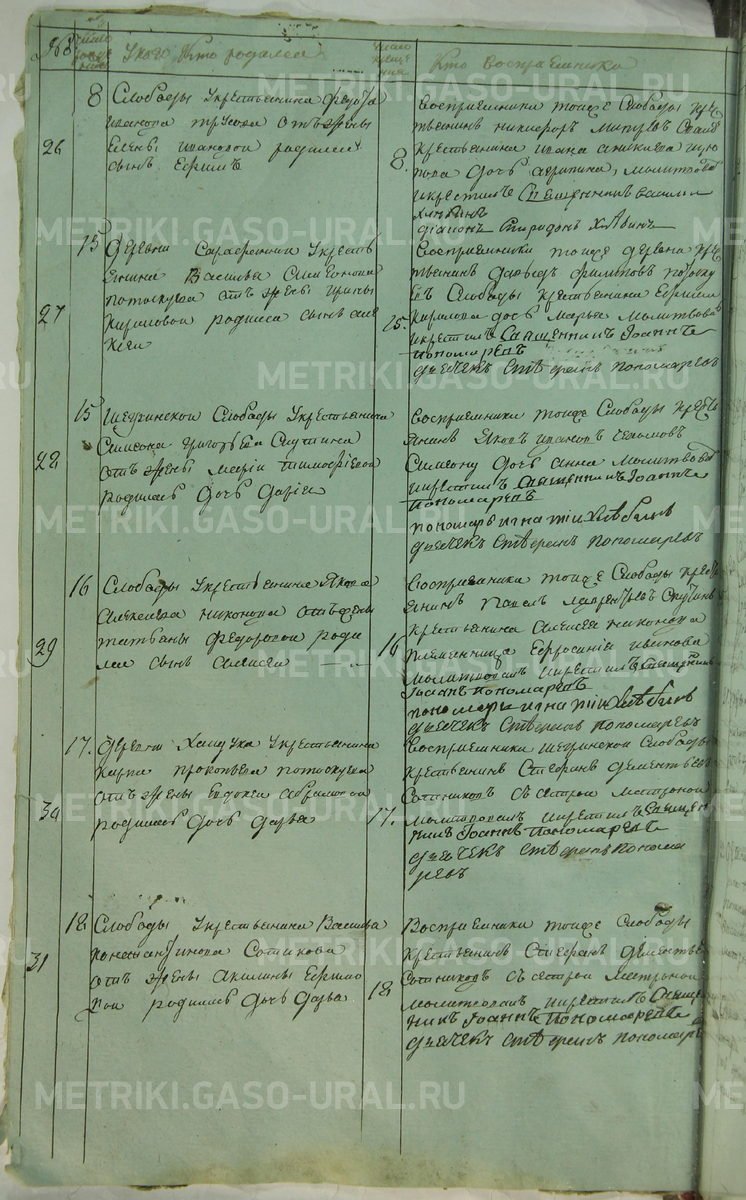 № число рождения У кого Кто родился число крещения Кто восприемники
26
8
Слободы у крестьянина Федора
Иванова от жены
Елены Ивановой родился
сынъ Ефимъ
8.
Восприемники тойже Слободы кре
стьянинъ Никифоръ
крестьянина Ивана
дочь Агрипина, молитвовал
и крестилъ Священникъ Василий
Хлябинъ
діаконъ Спиридонъ Хлябинъ
27
15
Деревни у кресть
янина Василья Симеонова
Потоскуева отъ жены Ирины
Кириловой родился сынъ Але
ксей
25.
Восприемники тойже деревни кре
стьянинъ Давыдъ Филиповъ Потоску
евъ Слободы крестьянина Ефима
Кирилова дочь Марья молитвовал
и крестилъ Священникъ Іоаннъ
Пономаревъ
дьячекъ Стефанъ Пономаревъ
28
15
Щелкунской Слободы у крестьянина
Симеона Григорьева
отъ жены Маріи Тимофеевой
родилась дочь Дарья
Восприемники тойже Слободы кресть
янинъ Яковъ Ивановъ
Симеону дочь Анна молитвовал
и крестилъ Священникъ Іоаннъ
Пономаревъ
пономарь Игнатій Хлѣбинъ
дьячекъ Стефанъ Пономаревъ
29
16
Слободы у крестьянина Якова
Алексеева Никонова отъ жены
Татьяны Федоровой роди
лся сынъ Алексей
16
Восприемники тойже Слободы кресть
янинъ Павелъ Лаврентьевъ
крестьянина Алексея Никонова
племянница Ефросинія Иванова
молитвовалъ и крестилъ Священникъ
Іоаннъ Пономаревъ
пономарь Игнатій Хлѣбинъ
дьячекъ Стефанъ Пономаревъ
30
17.
Деревни у крестьянина
Карпа Прокопьева Потоскуева
отъ жены Евдокеи Абрамовой
родилась дочь Дарья
17.
Восприемники Щелкунской Слободы
крестьянинъ Стефанъ Дементьевъ
Сотниковъ съ сестрой Матроной
молитвовалъ и крестилъ Священ
никъ Іоаннъ Пономаревъ
дьячекъ Стефанъ Понома
ревъ
31
18
Слободы у крестьянина Василья
Константинова Сотникова
отъ жены Акилины Ефимо
вой родилась дочь Дарья
18
Восприемники тойже Слободы
крестьянинъ Стефанъ Дементьевъ
Сотниковъ съ сестрой Матроной
молитвовалъ и крестилъ Священ
никъ Іоаннъ Пономаревъ
дьячекъ Стефанъ Пономаревъ
METRIKI.GASO-URAL.RU